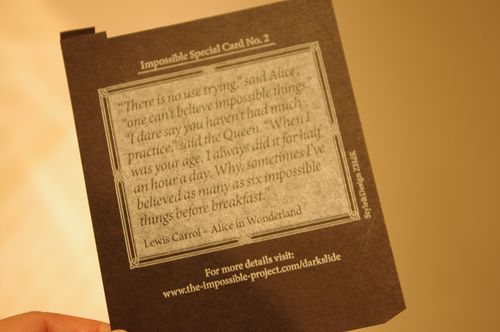 Impossible Special Card No. 2
“There is no use trying,” said Alice;
“one can't believe impossible things.”
“I dare say you haven't had much
practice,” said the Queen. “When I
was your age, I always did it for half
an hour a day. Why, sometimes I've
believed as many as six impossible
things before breakfast.”
Lewis Carrol – Alice in Wonderland
For more details visit:
www.the-impossible-project.com/darkslide
Style&Design ZHdK